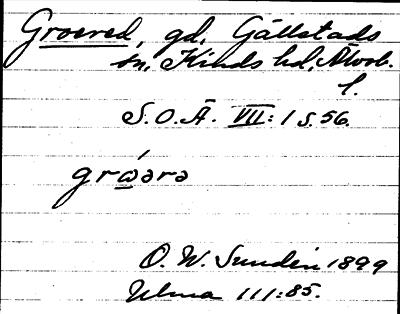 Groered, gd, Gällstads
sn, Kinds hd, Älvsb.
l.
S.O.Ä. VII: 1 s. 56.
grɷ́ərə
O. W. Sundén 1899
Ulma 111:85.